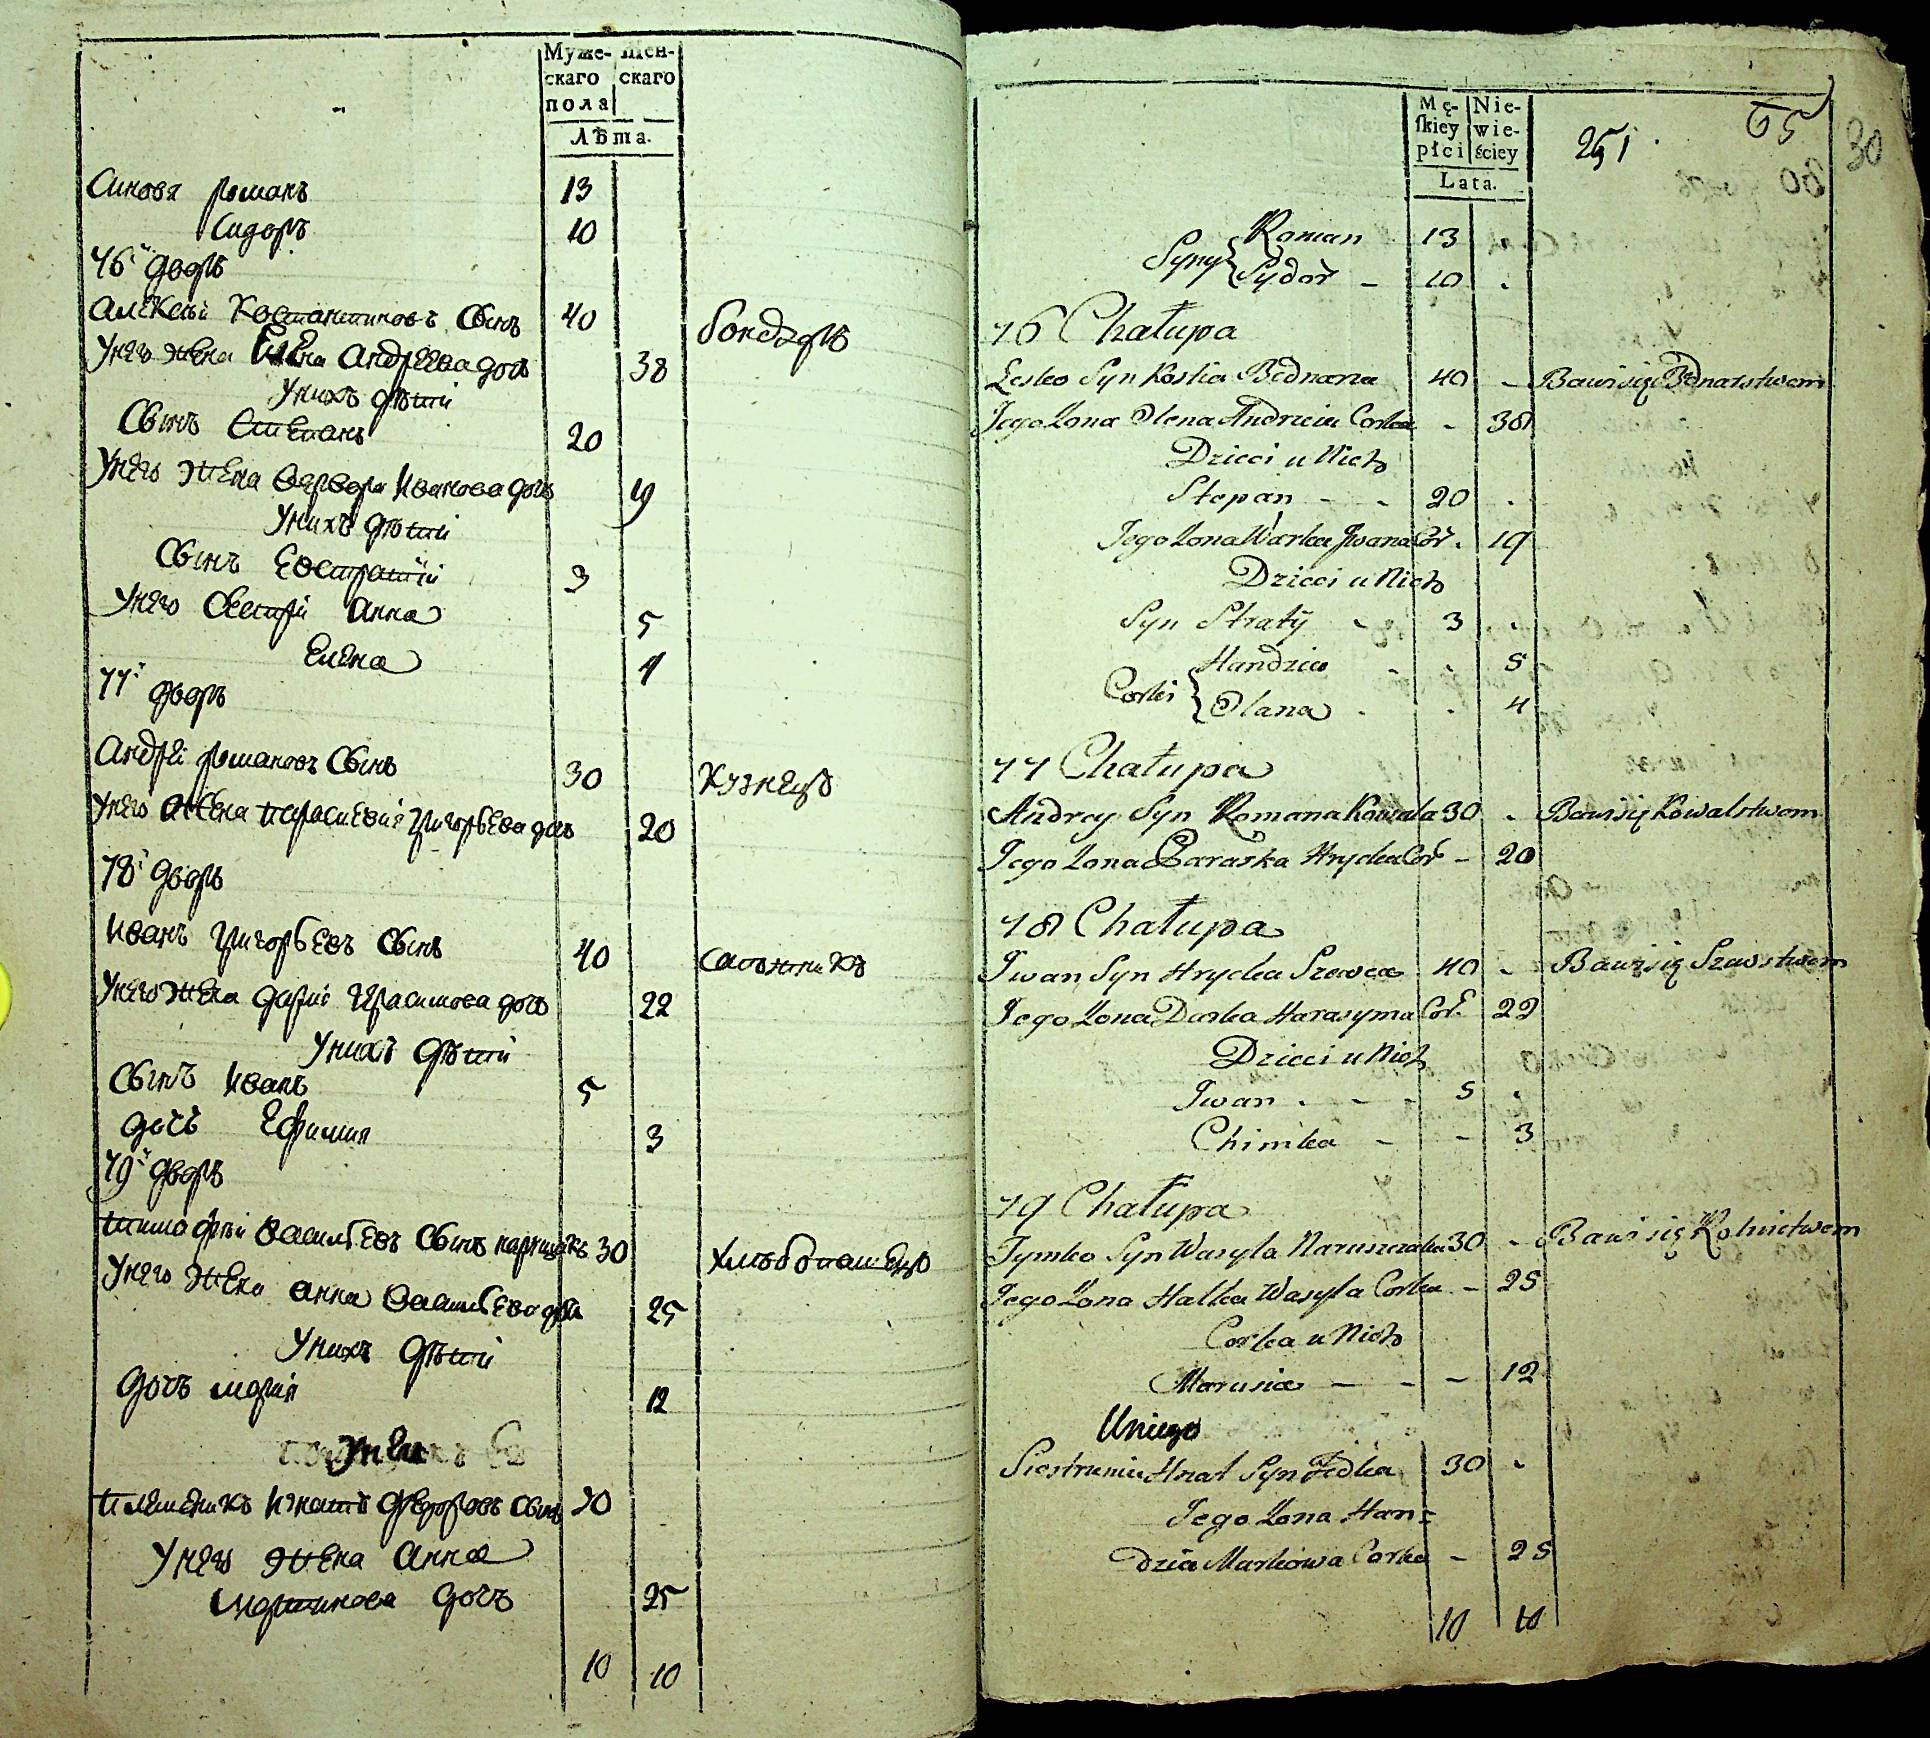 Муже- Жен-
скаго скаго
пола
Лѣта.
Синовя романъ 13
Сидоръ 10
76й дворъ
алексѣй Костантиновъ Сынъ 40 бондаръ
унего жена Елена андрѣева дочь 38
Унихъ дѣти
Сынъ Степанъ 20
унего жена варвара Иванова дочь 19
Унихъ дѣти
Сынъ Евстратій 3
унего Сестри анна 5
Елена 4
77й дворъ
андрѣй романовъ Сынъ 30 Кузнецъ
унего жена параскевія григорьева дочь 20
78й дворъ
иванъ григорьевъ Сынъ 40 сапожникъ
унего жена дарія герасимова дочь 22
Унихъ дѣти
Сынъ иванъ 5
дочь Ефимия 3
79й дворъ
тимофѣй васильевъ Сынъ 30 хлѣбопашецъ
унего жена анна васильева дочь 25
Унихъ дѣти
дочь марія 12
племѣникъ игнатъ федоровъ Сынъ 30
унего жена анна
мартинова дочъ 25
10 10
Mę- Nie-
skiey wie-
płci ściey
Lata.
251. 65
30
Syny Roman 13 -
Sydor - 10 -
76 Chałupa
Lesko Syn Kostia Bednara 40 - Bawi się Bednarstwem
Jego Zona Olena Andrzeia Corka - 38
Dzieci u Nich
Stepan - - 20 -
Jego Zona Warka Jwana Cor. 19
Dzieci u Nich
Syn Stratÿ - 3 -
Corki Handzia - - 5
Olana - - 4
77 Chałupa
Andrey Syn Romana Kowala 30 - Bawi się Kowalstwem
Jego Zona Paraska Hrycka Cor - 20
78 Chałupa
Jwan Syn Hrycka Szewca 40 - Bawi się Szewstwem
Jego Zona Darka Harasyma Cor. 22
Dzieci u Nich
Jwan - - - 5 -
Chimka - - 3
79 Chałupa
Tymko Syn Wasyla Naruszczaka 30 - Bawi się Rolnictwem
Jego Zona Halka Wasyla Corka - 25
Corka u Nich
Marusia - - - 12
Uniego
Siestrunin Hnat Syn Fedka 30 -
Jego Zona Han=
dzia Markowa Corka - 25
10 10